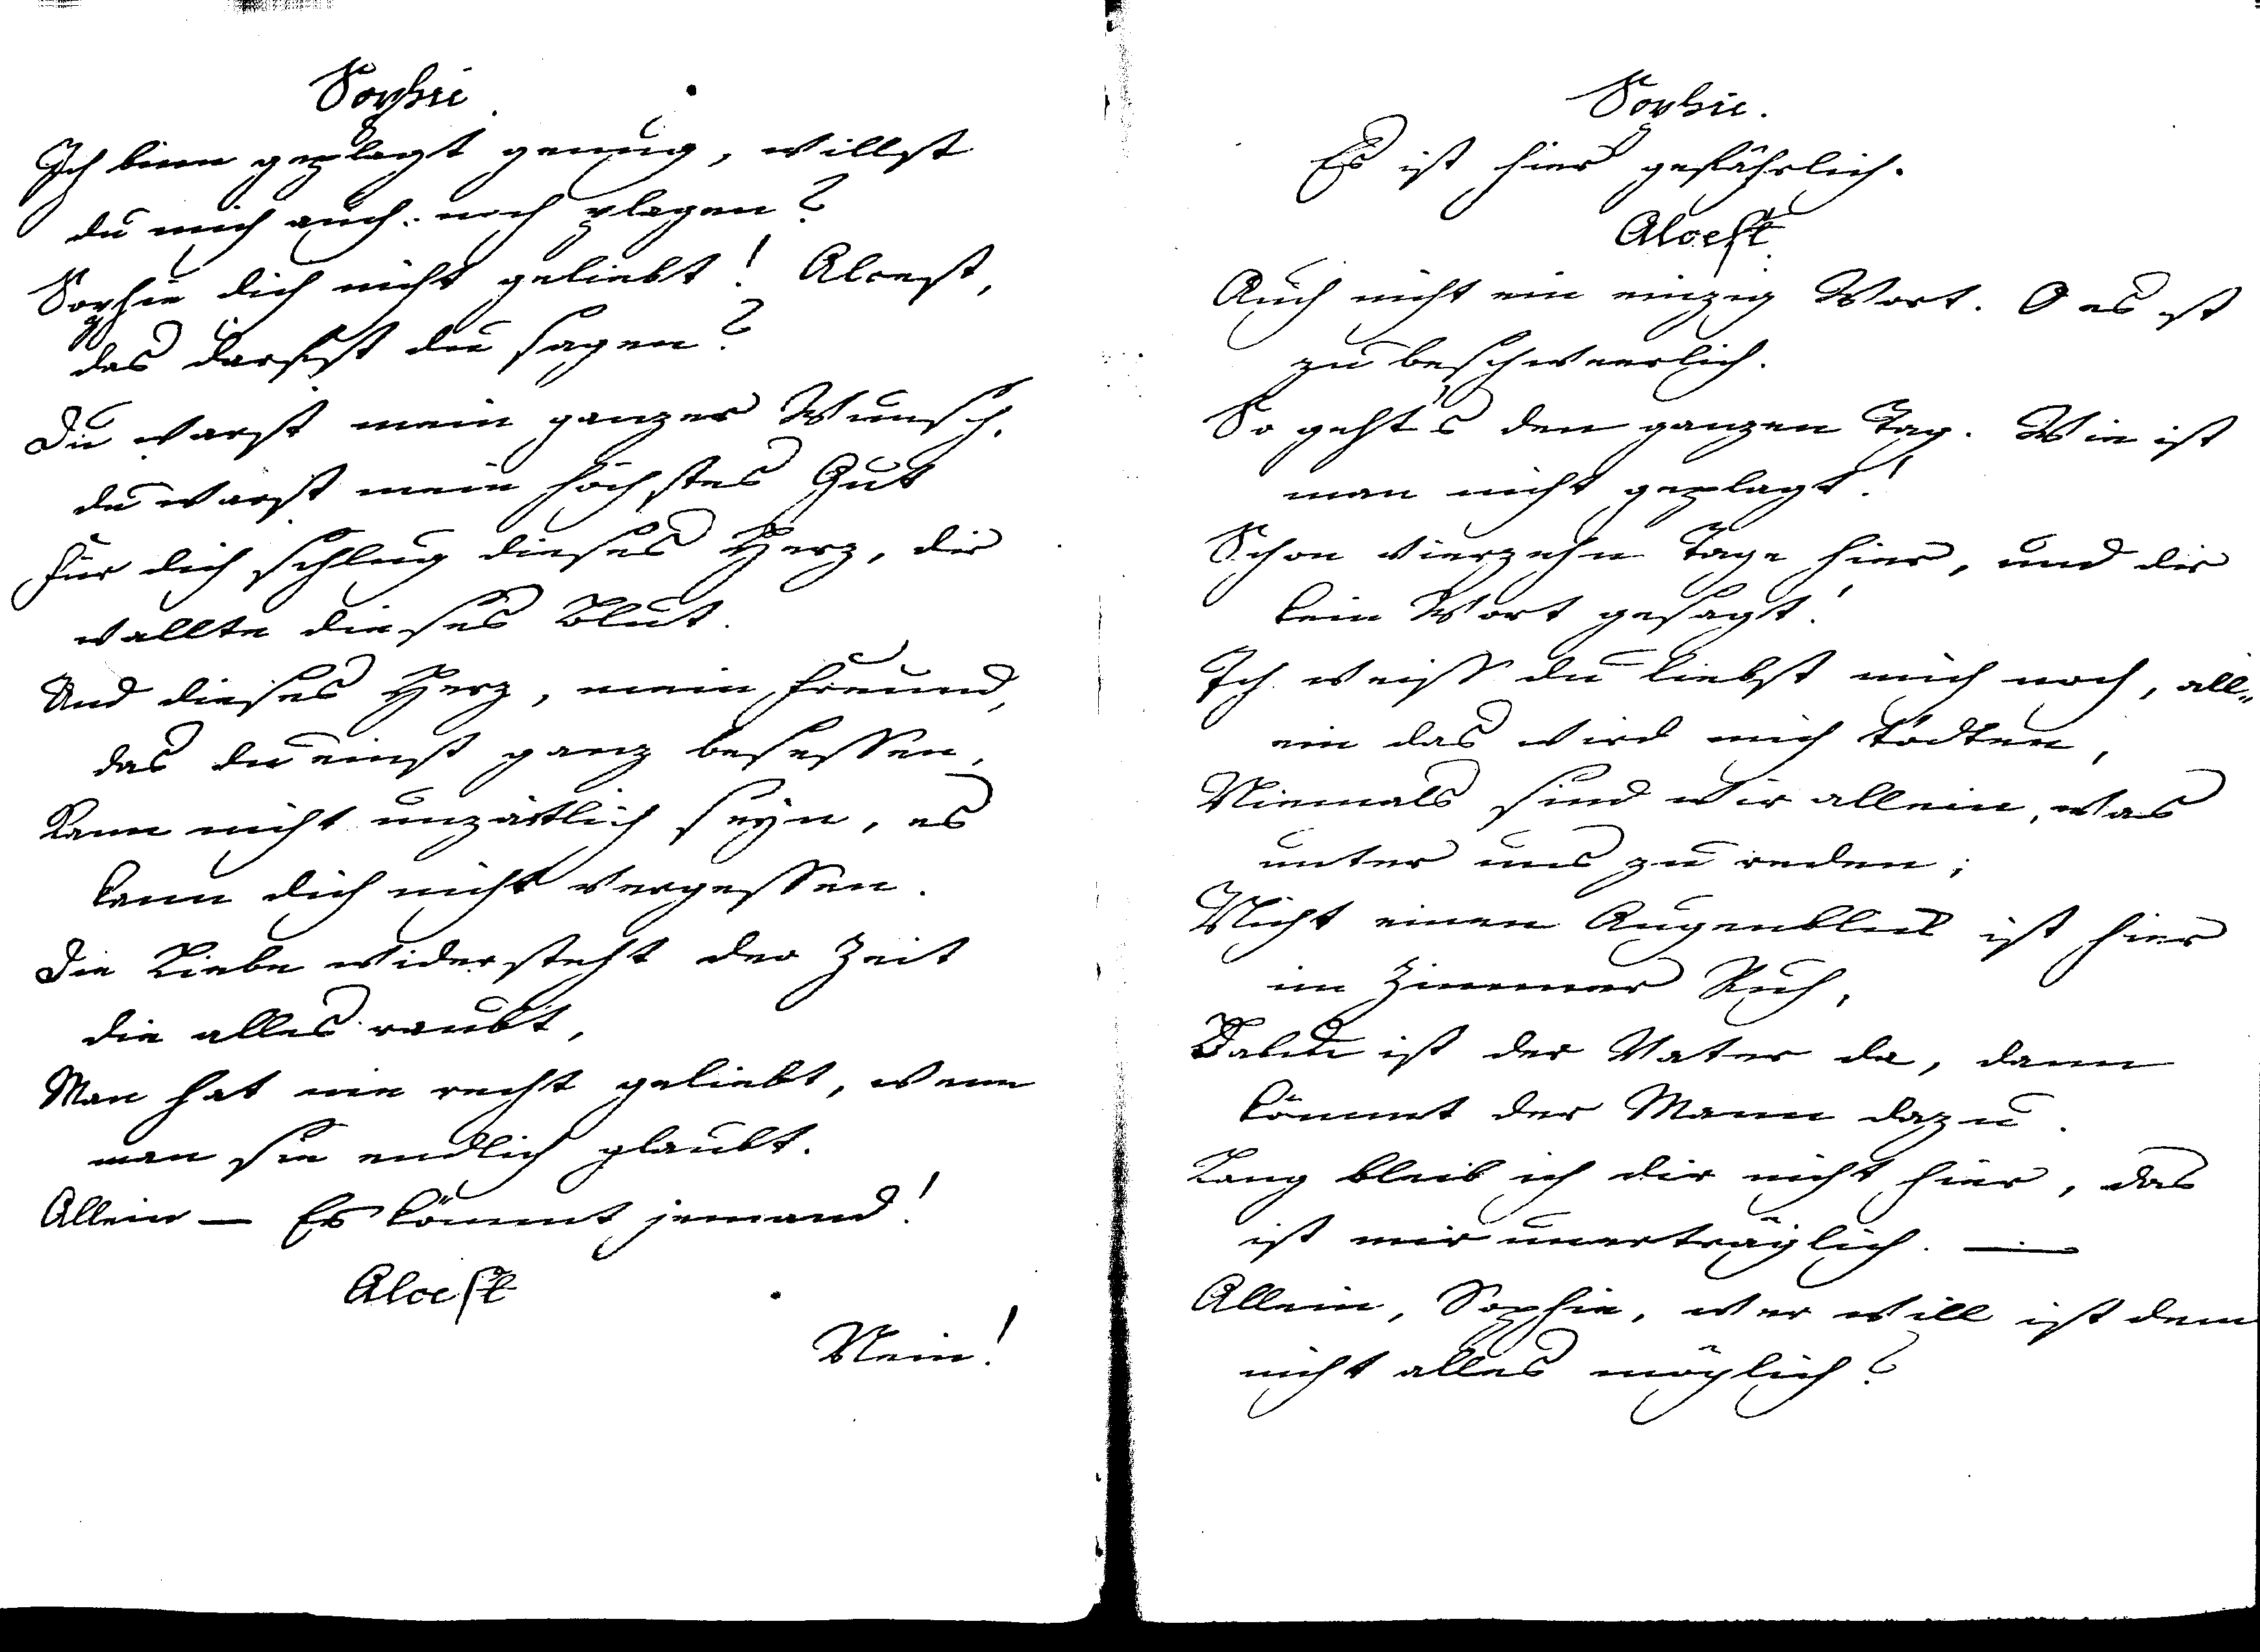 Sophie
Ich binn geplagt genug, willst
du mich auch noch plagen?
Sophie dich nicht geliebt! Alcest,
das darfst du sagen?
Du warst mein ganzer Wunsch,
du warst mein höchstes Gut
Für dich schlug dieses Herz, dir
wallte dieses Blut.
Und dieses Herz, mein Freund,
das du einst ganz besessen,
Kann nicht unzärtlich seyn, es
kann dich nicht vergessen.
Die Liebe widersteht der Zeit
die alles raubt,
Man hat nie recht geliebt, wenn
man sie endlich glaubt.
Allein — Es kömmt jemand!
Alcest
Nein!
Sophie.
Es ist hier gefährlich.
Alcest
Auch nicht ein einzig Wort. O es ist
zu beschweerlich.
So geht's den ganzen Tag. Wie ist
man nicht geplagt!
Schon vierzehn Tage hier, und dir
kein Wort gesagt!
Ich weiss du liebst mich noch, all„
ein das wird mich tödten,
Niemals sind wir allein, was
unter uns zu reden;
Nicht einen Augenblick ist hier
im Zimmer Ruh,
Bald ist der Vater da, dann
kömmt der Mann dazu.
Lang bleib ich dir nicht hier, das
ist mir unerträglich. —
Allein, Sophie, wer will ist dem
nicht alles möglich?